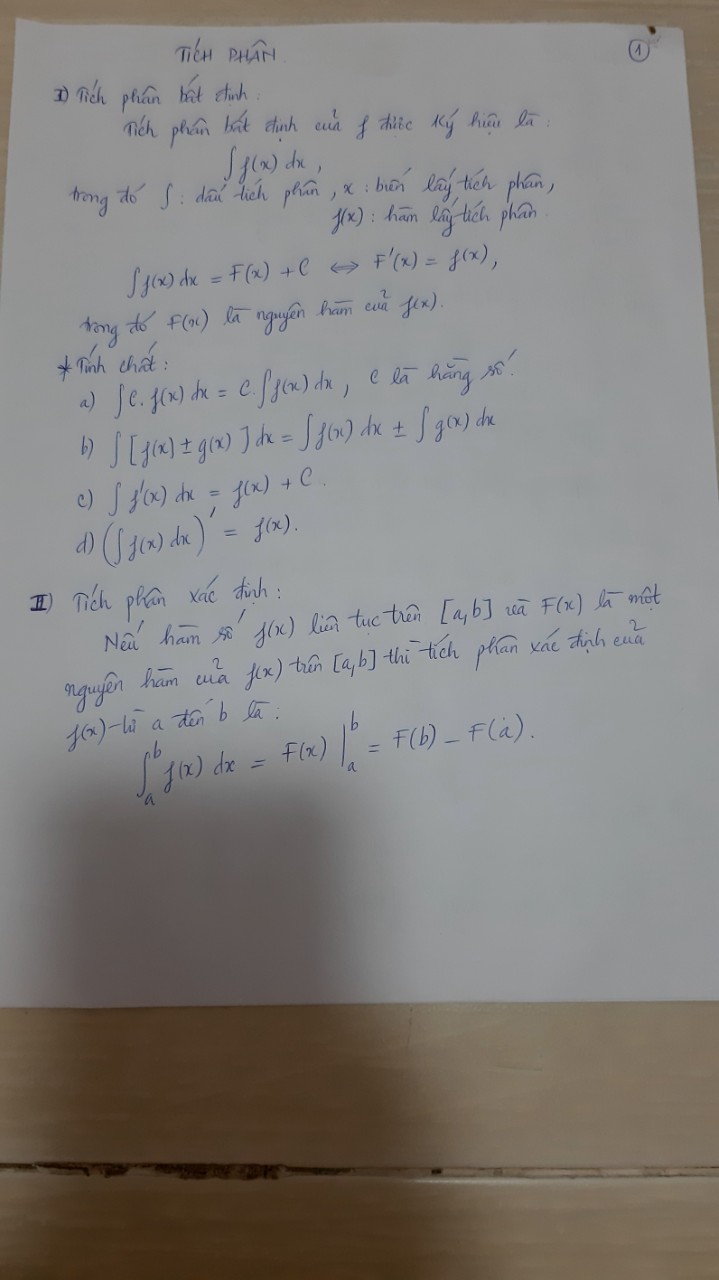 TÍCH PHÂN
1
I) Tích phân bất định.
Tích phân bất định của f được ký hiệu là:
∫f(x) dx,
trong đó ∫: dấu tích phân, x: biến lấy tích phân,
f(x): hàm lấy tích phân.
∫f(x) dx = F(x) + C ⇔ F'(x) = f(x),
trong đó F(x) là nguyên hàm của f(x).
* Tính chất:
a) ∫C.f(x) dx = C.∫f(x) dx, C là hằng số.
b) ∫[f(x) ± g(x)] dx = ∫f(x) dx ± ∫g(x) dx
c) ∫f'(x) dx = f(x) + C.
d) (∫f(x) dx)' = f(x).
II) Tích phân xác định:
Nếu hàm số f(x) liên tục trên [a,b] và F(x) là một
nguyên hàm của f(x) trên [a,b] thì tích phân xác định của
f(x) từ a đến b là:
∫ₐᵇ f(x) dx = F(x) |ₐᵇ = F(b) - F(a).